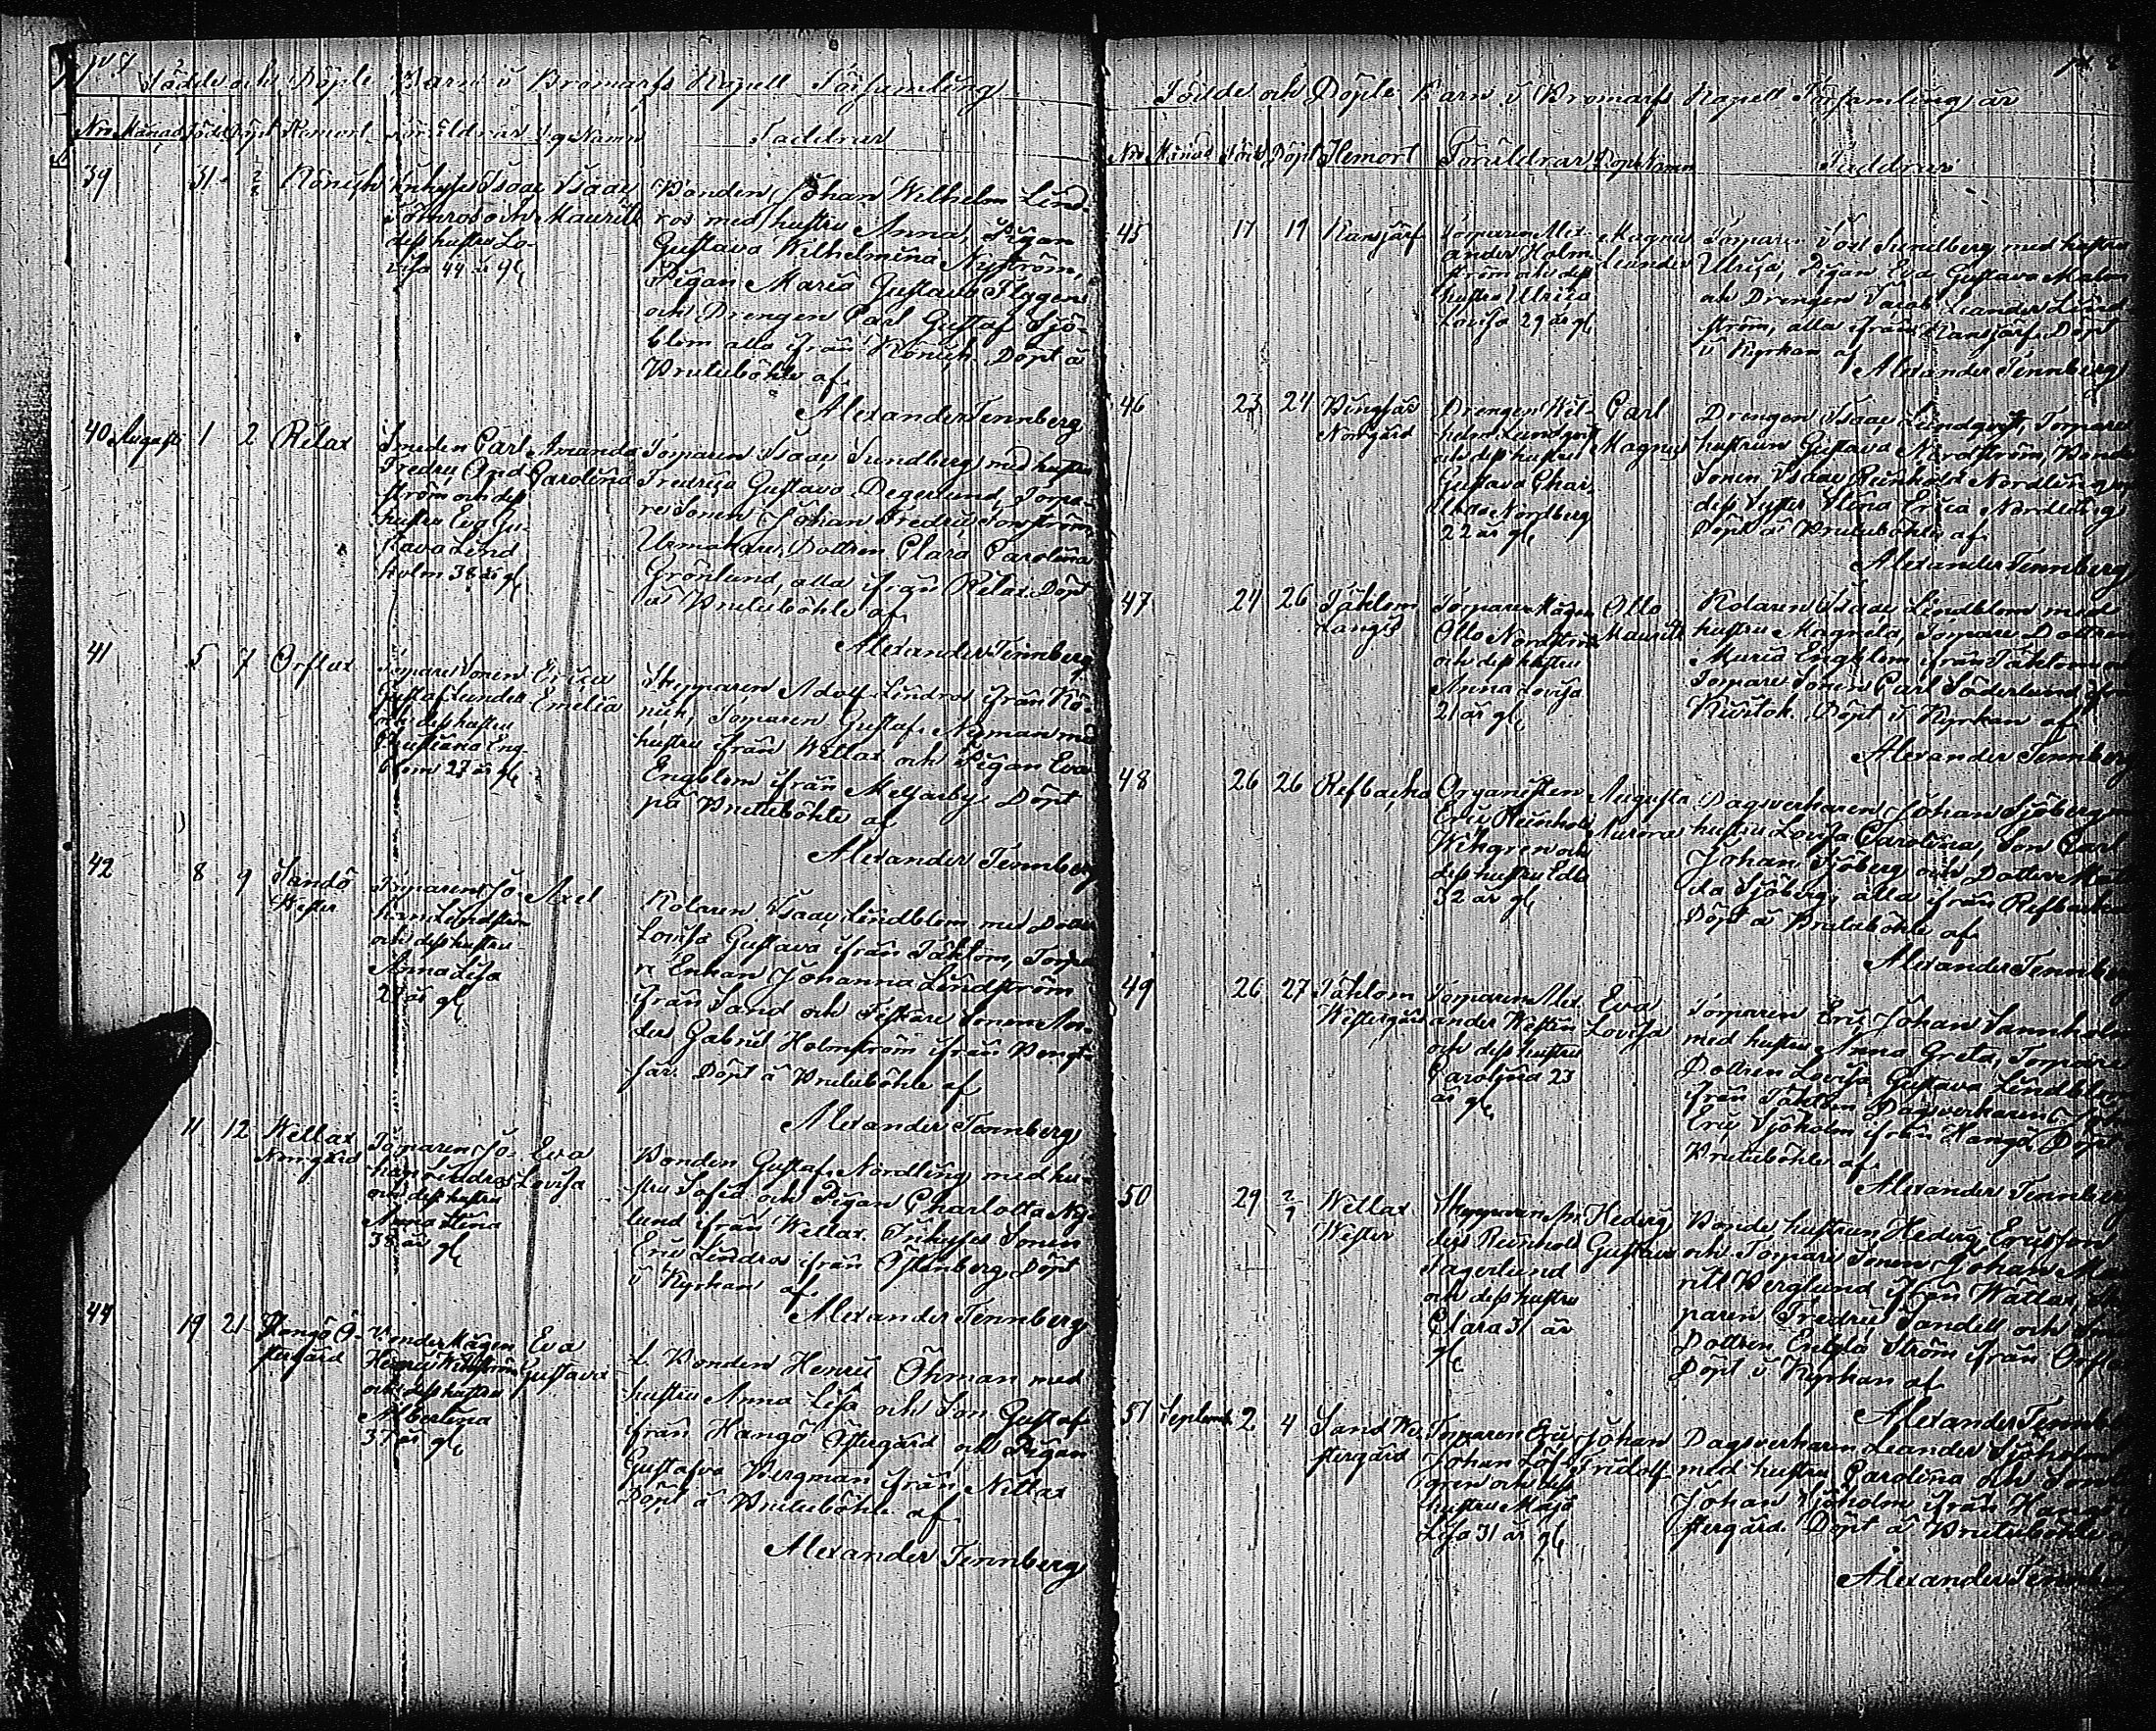 Födde och Döpte Barn i Bromarfs Kapell Församling
Nro Månad Född Döpt Hemort Föräldrar Namn Faddrar
39 31 2/8 Könich Inhyses Isaac Isaac Bonden Johan Wilhelm Lind-
Sohnroos och Mauritz ros med hustru Anna, Pigan
dess hustru Lo- Gustava Wilhelmina Nyström,
visa 44 år gl. Pigan Maria Gustava Flygen
och Drengen Carl Gustaf Sjö-
blom alla ifrån Könich. Döpt å
Brutuböhle af
Alexander Tennberg
40 Augusti 1 2 Rilax Smeden Carl Amanda Torparen Isaac Sundberg med hustru
Fredric And- Carolina Fredrica Gustava Degerlund, Torpa-
ström och dess re Sonen Johan Fredric
hustru Eva Gu- Urmakare Dottren Clara Carolina
stava Lind Grönlund, alla ifrån Rilax. Döpt
holm 38 år gl. å Brutuböhle af
Alexander Tennberg
41 5 7 Orslax Torpare Sonen Erica Skepparen Adolf Lindros ifrån Kö-
Gustaf Lunden Emelia nich, Torparen Gustaf Nyman med
och dess hustru hustru ifrån Wättlax och Pigan Eva
Christiana Eng- Engblom ifrån Meljarby. Döpt
blom 27 år gl. på Brutuböhle af
Alexander Tennberg
42 8 9 Sandö Torparen Jo- Axel Kolaren Isaac Lindblom med Dotter
Wester han Lindström Lovisa Gustava ifrån Täktom, Torpa-
och dess hustru re Enkan Johanna Lindström
Anna Lisa ifrån Sand och Fiskare Sonen An-
29 år gl. der Gabriel Holmström ifrån Bengt-
sar. Döpt å Brutuböhle af
Alexander Tennberg
11 12 Wettlax Torparen Jo- Eva Bonden Gustaf Nordling med hu-
Norrgård han Lindros Lovisa stru Sofia och Pigan Charlotta Ny-
och dess hustru lund ifrån Wettlax. Inhyses Sonen
Anna Stina Eric Lindros ifrån Östanberg. Döpt
38 år gl. i Kyrkan af
Alexander Tennberg
44 19 21 Hangö Ö- Bonde Mågen Eva Bonden Henric Öhman med
stergård Henric Gustava hustru Anna Lisa och Son Gustaf
och dess hustru ifrån Hangö Östergård och Pigan
Albertina Gustafva Bergman ifrån Nittax
37 år gl. Döpt å Brutuböhle af
Alexander Tennberg
Födde och Döpte Barn i Bromarfs Kapell Församling år
Nro Månad Född Döpt Hemort Föräldrar Dopt Namn Faddrar
45 17 19 Kansjärf Torparen Alex- Magnus Torparen Joel Sundberg med hustru
ander Holm- Leander Ulrica, Pigan Eva Gustava
ström och dess och Drengen Jacob Leander Lind-
hustru Ulrica ström, alla ifrån Kansjärf. Döpt
Lovisa 29 år gl. i Kyrkan af
Alexander Tennberg
46 23 24 Bengtsår Drengen Wil- Carl Drengen Isaac Lundqvist, Torpare
Norrgård helm Lundqvist Magnus hustrun Gustava Nordström, Bonde
och dess hustru Sonen Isaac Reinhold Nordling och
Gustava Char- dess Syster Stina Erica Nordling
lotta Nordberg Döpt å Brutuböhle af
22 år gl.
Alexander Tennberg
47 24 26 Täktom Torpare Mågen Otto Kolaren Isaac Lindblom med
Langs Otto Nordström Mauritz hustru Magreta, Torpare Dottren
och dess hustru Maria Engblom ifrån Täktom och
Anna Lovisa Torpare Sonen Carl Söderlund
21 år gl. Döpt i Kyrkan af
Alexander Tennberg
48 26 26 Refbacka Organisten Augusta Dagsverkaren Johan Sjöberg
Eric Reinhold Aurora hustru Lovisa Carolina, Son Carl
Wihgren och Johan Sjöberg och Dotter
dess hustru Edla Sjöberg; alla ifrån Refbacka
32 år gl. Döpt å Brutuböhle af
Alexander Tennberg
49 26 27 Täktom Torparen Alex- Eva Torparen Eric Johan Sannholm
Westergård ander Westin Lovisa med hustru Anna Greta, Torpare
och dess hustru Dottren Lovisa Gustava Lindblom
Carolina 23 ifrån Täktom Dagsverkaren
år gl. Eric Sjöholm ifrån Hangö. Döpt
Brutuböhle af
Alexander Tennberg
50 29 2/9 Wettlax Skepparen An- Hedvig Bonde hustrun Hedvig Ericsson
Wester ders Reinhold Gustava och Torpare Sonen Johan
Fagerlund Berglund ifrån Wättlax,
och dess hustru paren Fredric Sandell och
Clara 31 år Dottren Ström ifrån
gl. Döpt i Kyrkan af
Alexander Tennberg
51 Septemb. 2 4 Sand We- Torparen Eric Johan Dagsverkaren Leander Sjöholm
stergård Johan Löf- Fridolf med hustru Carolina och Son
gren och dess Johan Sjöholm ifrån Hangö
hustru Maja stergård. Döpt å Brutuböhle
Lisa 31 år gl.
Alexander Tennberg